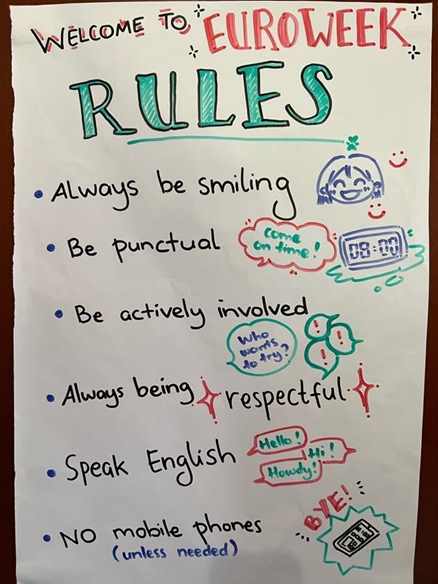 WELCOME TO EUROWEEK
RULES
• ALways be smiling
• Be punctual
come
on time!
08:00
• Be actively involved
Who
wants
to try?
! ! !
• Always being respectful
• Speak English
Hello!
Hi!
Howdy!
• NO mobile phones
(unless needed)
BYE!